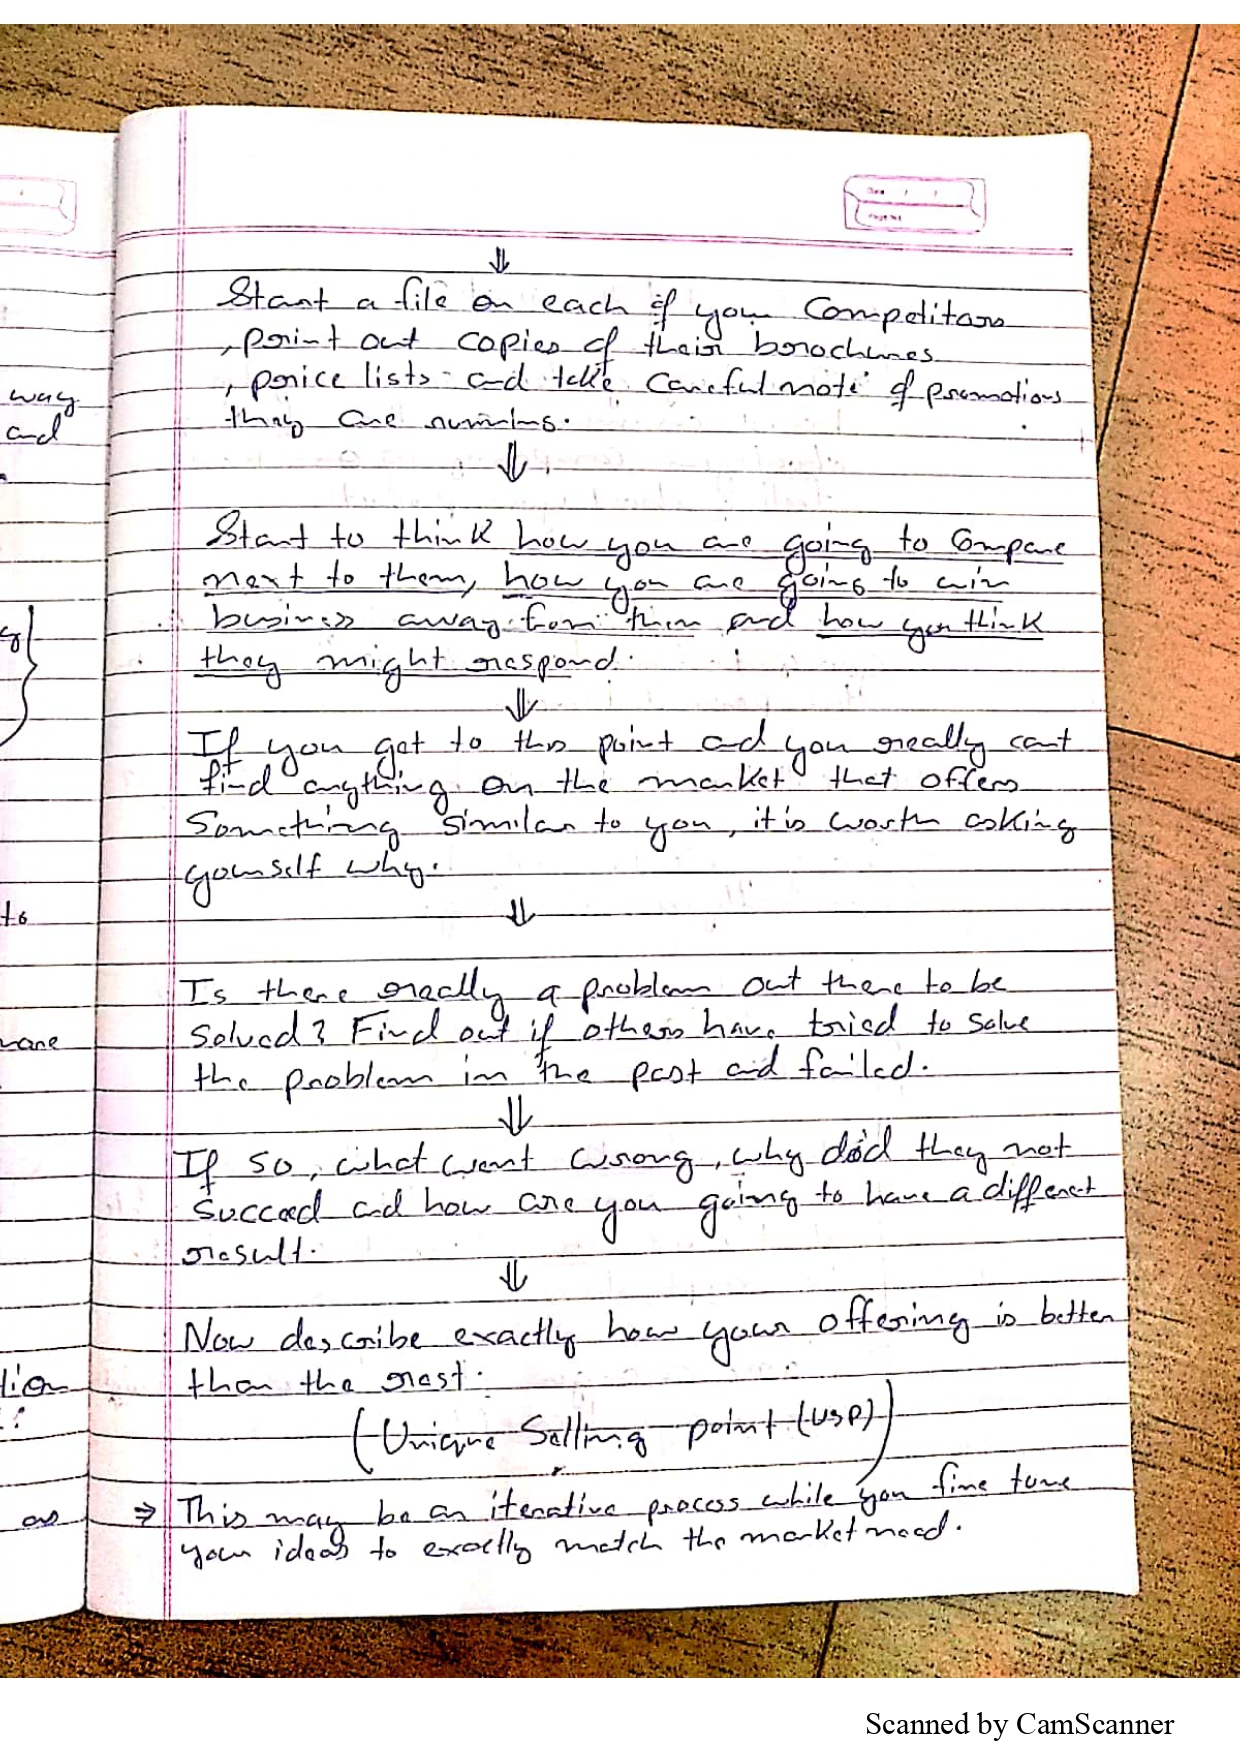 way
and
to
as
Date / /
Page No.
⇓
Start a file on each of your Competitors
, print out copies of their brochures
, price lists and take careful note of promotions
they are running.
⇓
Start to think how you are going to Compare
next to them, how you are going to win
business away from them and how you think
they might respond.
⇓
If you get to this point and you really cant
find anything on the market that offers
Something similar to you, it is worth asking
yourself why.
⇓
Is there really a problem out there to be
solved? Find out if others have tried to solve
the problem in the past and failed.
⇓
If so, what went wrong, why did they not
Succeed and how are you going to have a different
result.
⇓
Now describe exactly how your offering is better
than the rest.
(Unique Selling point (USP))
⇒ This may be an iterative process while you fine tune
your ideas to exactly match the market need.
Scanned by CamScanner